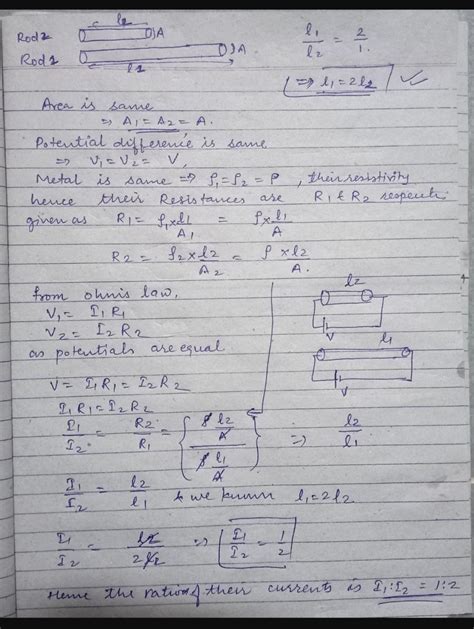 Rod2 l2 A
Rod1 l1 A
l1/l2 = 2/1.
⇒ l1 = 2l2 ✓
Area is same
⇒ A1 = A2 = A.
Potential difference is same
⇒ V1 = V2 = V,
Metal is same ⇒ ρ1 = ρ2 = ρ, their resistivity
hence their Resistances are R1 & R2
given as R1 = ρ1 × l1/A1 = ρ × l1/A
R2 = ρ2 × l2/A2 = ρ × l2/A.
from ohm's law,
V1 = I1R1
V2 = I2R2
as potentials are equal
l2
V
l1
V
V = I1R1 = I2R2
I1R1 = I2R2
I1/I2 = R2/R1 = {ρ l2/A / ρ l1/A} ⇒ l2/l1
I1/I2 = l2/l1 & we known l1 = 2l2
I1/I2 = l2/2l2 ⇒ I1/I2 = 1/2
Hence the ration of their currents is I1:I2 = 1:2